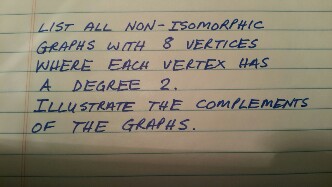 LIST ALL NON-ISOMORPHIC
GRAPHS WITH 8 VERTICES
WHERE EACH VERTEX HAS
A DEGREE 2.
ILLUSTRATE THE COMPLEMENTS
OF THE GRAPHS.